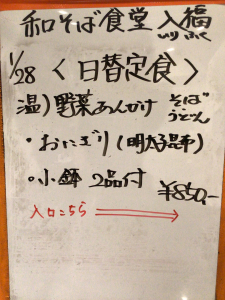 和そば食堂 入福
いりふく
1/28 〈日替定食〉
温)野菜あんかけ そば
うどん
・おにぎり(明太子昆布)
・小鉢 2品付
¥850,-
入口こちら